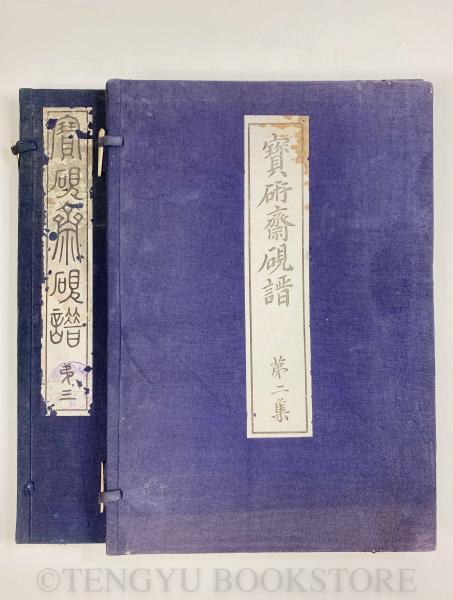 寶研齋硯譜
第二集
寶硯齋硯譜
第三
©TENGYU BOOKSTORE